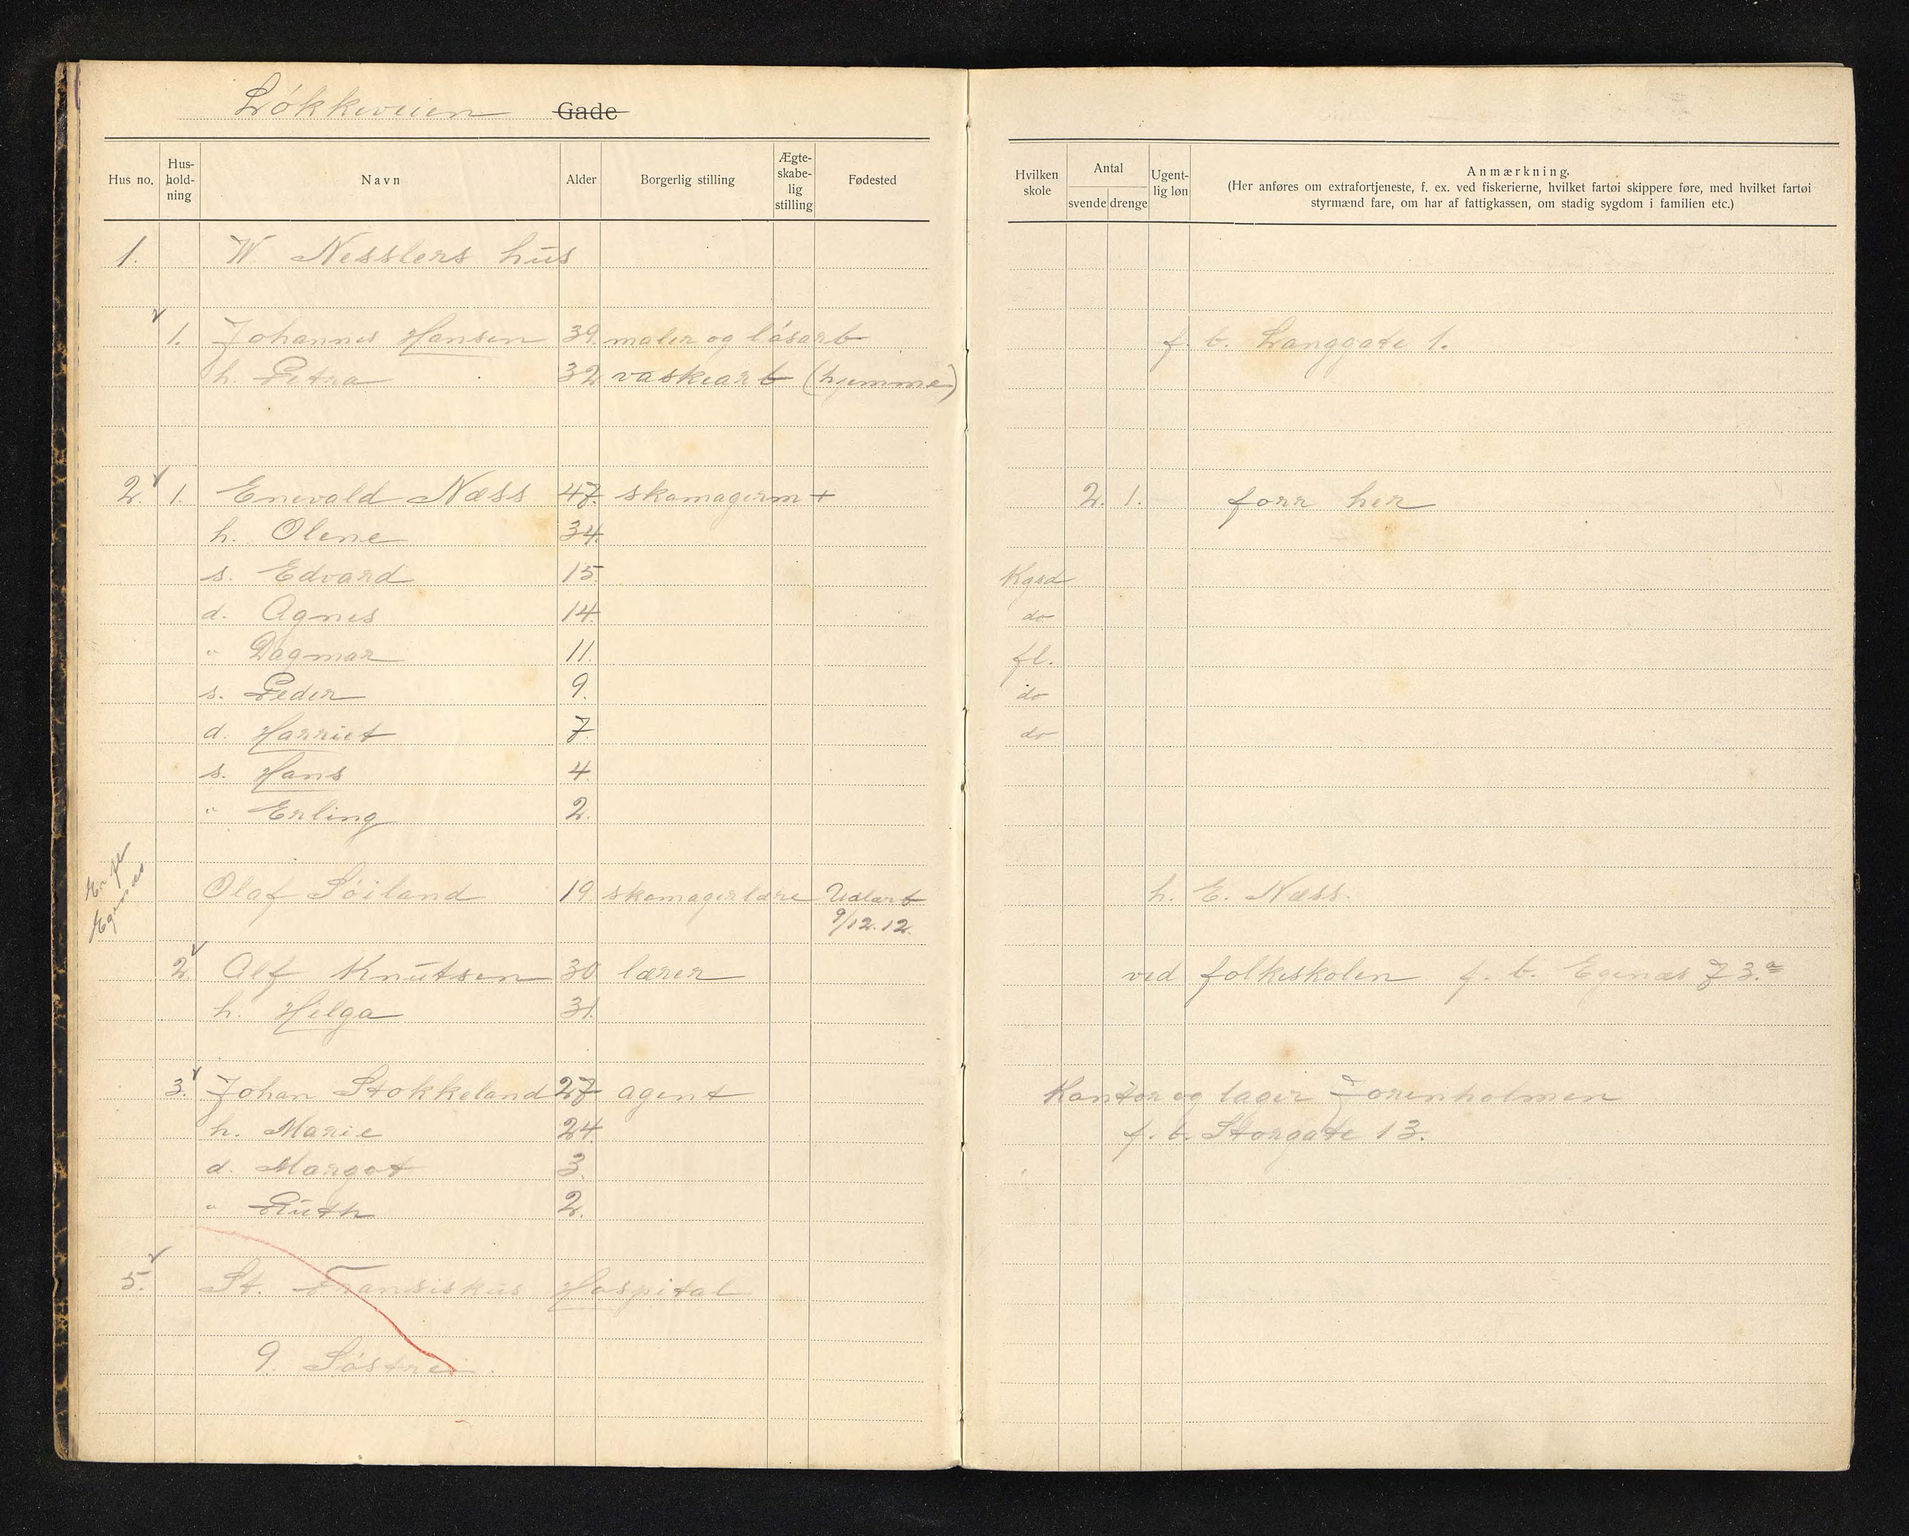 Løkkeveien Gade
Hus no. Hus-hold-ning Navn Alder Borgerlig stilling Ægte-skabe-lig stilling Fødested Hvilken skole Antal svende drenge Ugent-lig løn Anmærkning.
(Her anføres om extrafortjeneste, f. ex. ved fiskerierne, hvilket fartøi skippere føre, med hvilket fartøi
styrmænd fare, om har af fattigkassen, om stadig sygdom i familien etc.)
1. W Nesslers hus
1. Johannes Hansen 39. maler og løsarb f. b. Langgate 1.
h. Petra 32 vaskearb (hjemme)
2. 1. Enevald Næss 47. skomagerm + 2. 1. forr her
h. Olene 34.
s. Edvard 15 Kgsd
d. Agnes 14. do
" Dagmar 11. fl.
s. Peder 9. do
d. Harriet 7 do
s. Hans 4.
" Erling 2.
Egenæs
Olaf Søiland 19. skomagerlære Udlært h. E. Næss.
9/12.12.
2. Alf Knutsen 30 lærer ved folkeskolen f. b. Egenæs 73.a
h. Helga 31.
3. Johan Stokkeland 27 agent Kontor og lager Jorenholmen
h. Marie 24 f. b. Storgate 13.
d. Margot 3.
" Ruth 2.
5. St. Fransiskus Hospital
9. Søstre